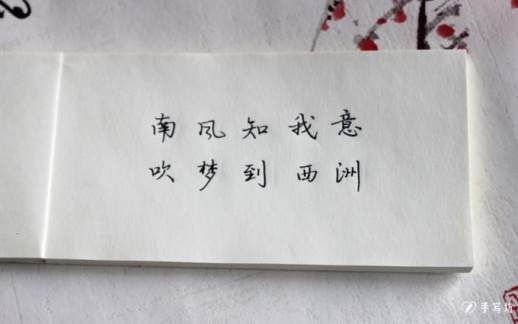 南风知我意
吹梦到西洲
手写